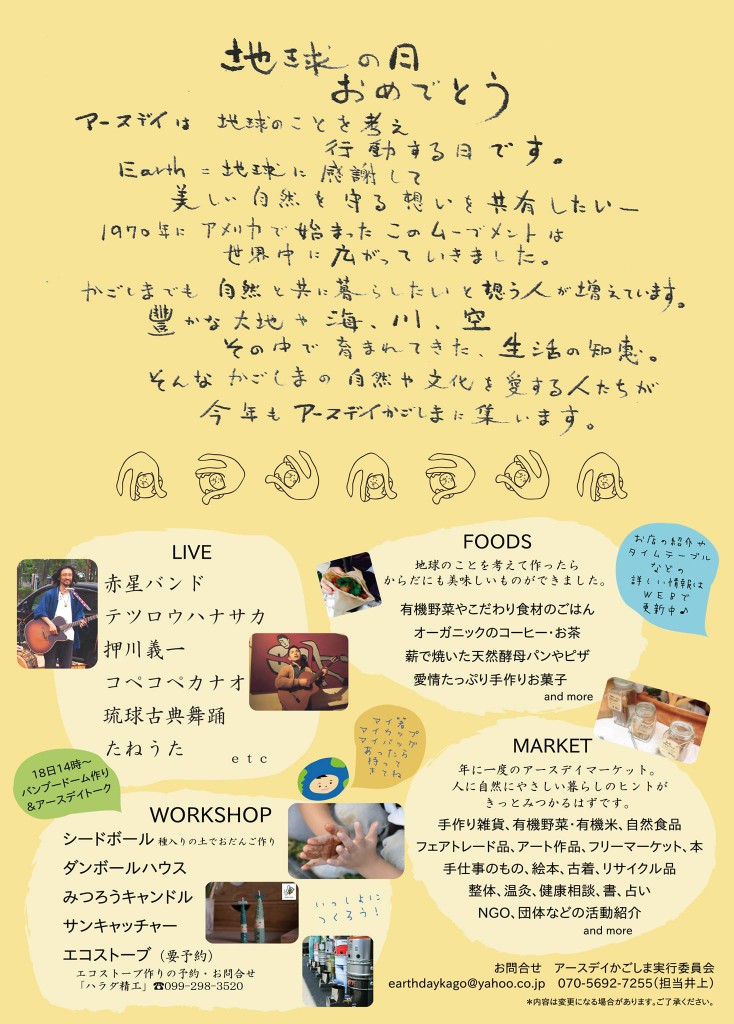 地球の日
おめでとう
アースデイは 地球のことを考え
行動する日です。
Earth=地球に感謝して
美しい自然を守る想いを共有したいー
1970年にアメリカで始まったこのムーブメントは
世界中に広がっていきました。
かごしまでも 自然と共に暮らしたいと想う人が増えています。
豊かな大地や海、川、空
その中で育まれてきた、生活の知恵。
そんなかごしまの自然や文化を愛する人たちが
今年もアースデイかごしまに集います。
LIVE
赤星バンド
テツロウハナサカ
押川義一
コペコペカナオ
琉球古典舞踊
たねうた
etc
FOODS
地球のことを考えて作ったら
からだにも美味しいものができました。
有機野菜やこだわり食材のごはん
オーガニックのコーヒー・お茶
薪で焼いた天然酵母パンやピザ
愛情たっぷり手作りお菓子
and more
お店の紹介や
タイムテーブル
などの
詳しい情報は
WEBで
更新中♪
マイ箸
マイカップ
マイバッグ
あったら
持って
きてね
18日14時〜
バンブードーム作り
&アースデイトーク
WORKSHOP
シードボール 種入りの土でおだんご作り
ダンボールハウス
みつろうキャンドル
サンキャッチャー
エコストーブ（要予約）
エコストーブ作りの予約・お問合せ
「ハラダ精工」☎099-298-3520
いっしょに
つくろう!
MARKET
年に一度のアースデイマーケット。
人に自然にやさしい暮らしのヒントが
きっとみつかるはずです。
手作り雑貨、有機野菜・有機米、自然食品
フェアトレード品、アート作品、フリーマーケット、本
手仕事のもの、絵本、古着、リサイクル品
整体、温灸、健康相談、書、占い
NGO、団体などの活動紹介
and more
お問合せ アースデイかごしま実行委員会
earthdaykago@yahoo.co.jp 070-5692-7255（担当井上）
*内容は変更になる場合があります。ご了承ください。